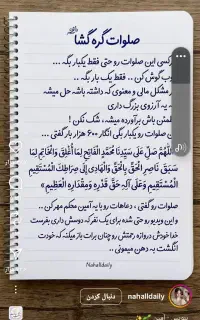 صلوات گره گشا
هرکسی این صلوات رو حتی فقط یکبار بگه ...
خوب گوش کن .. فقط یک بار بگه ..
هر مشکل مالی و معنوی که داشته باشه حل میشه
یه آرزوی بزرگ داری
مطمئن باش برآورده میشه ، شک نکن !
این صلوات رو یکبار بگی انگار ۶۰۰ هزار بار گفتی ...
اللَّهُمَّ صَلِّ عَلَى سَيِّدِنَا مُحَمَّدٍ الْفَاتِحِ لِمَا أُغْلِقَ وَالْخَاتِمِ لِمَا
سَبَقَ نَاصِرِ الْحَقِّ بِالْحَقِّ وَالْهَادِي إِلَى صِرَاطِكَ الْمُسْتَقِيمِ
الْمُسْتَقِيمِ وَعَلَى آلِهِ حَقَّ قَدْرِهِ وَمِقْدَارِهِ الْعَظِيمِ»
صلوات رو گفتی ، دعاهات رو با یه آمین محکم مهر کن ..
و این ویدیو رو حتی شده برای یک نفر که دوسش داری بفرست
خدا خودش دروازه رحمتش رو چنان برات باز میکنه که خودت
انگشت به دهن میمونی ..
Nahalldaily
دنبال کردن
nahalldaily